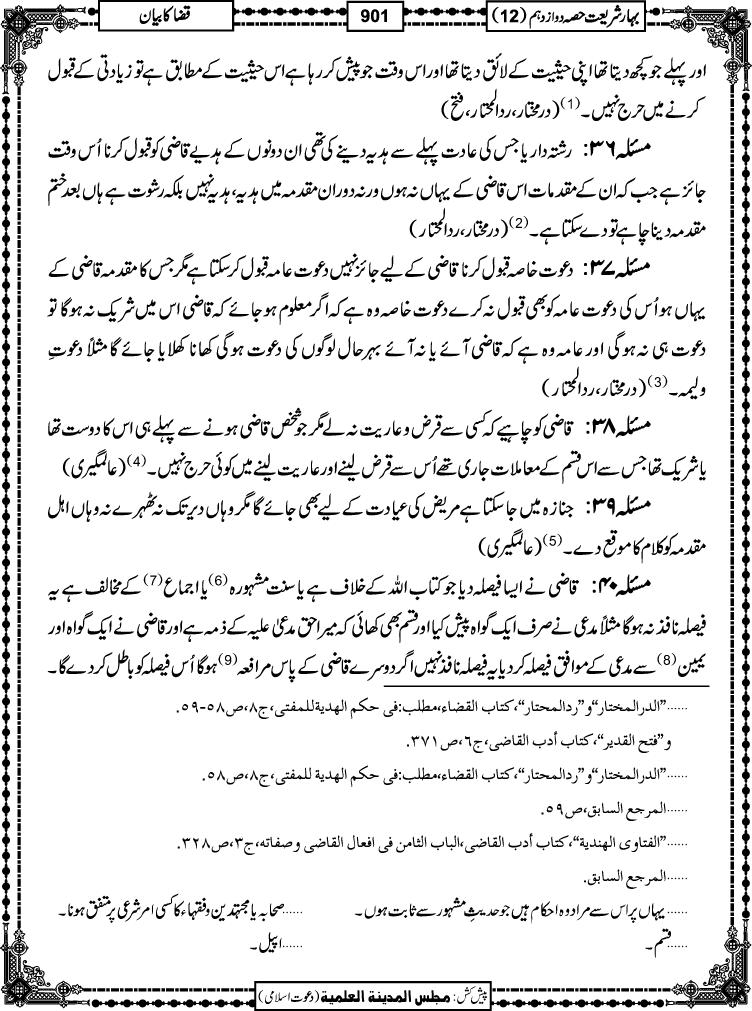 بہارشریعت حصہ دوازدہم (12)
901
قضا کا بیان
اور پہلے جو کچھ دیتا تھا اپنی حیثیت کے لائق دیتا تھا اور اس وقت جو پیش کر رہا ہے اس حیثیت کے مطابق ہے تو زیادتی کے قبول
کرنے میں حرج نہیں۔(1) (درمختار، ردالمحتار، فتح)
مسئلہ ۳۶: رشتہ دار یا جس کی عادت پہلے سے ہدیہ دینے کی تھی ان دونوں کے ہدیے قاضی کو قبول کرنا اُس وقت
جائز ہے جب کہ ان کے مقدمات اس قاضی کے یہاں نہ ہوں ورنہ دوران مقدمہ میں ہدیہ، ہدیہ نہیں بلکہ رشوت ہے ہاں بعد ختم
مقدمہ دینا چاہے تو دے سکتا ہے۔(2) (درمختار، ردالمحتار)
مسئلہ ۳۷: دعوت خاصہ قبول کرنا قاضی کے لیے جائز نہیں دعوت عامہ قبول کرسکتا ہے مگر جس کا مقدمہ قاضی کے
یہاں ہو اُس کی دعوت عامہ کو بھی قبول نہ کرے دعوت خاصہ وہ ہے کہ اگر معلوم ہو جائے کہ قاضی اس میں شریک نہ ہوگا تو
دعوت ہی نہ ہوگی اور عامہ وہ ہے کہ قاضی آئے یا نہ آئے بہرحال لوگوں کی دعوت ہوگی کھانا کھلایا جائے گا مثلاً دعوتِ
ولیمہ۔(3) (درمختار، ردالمحتار)
مسئلہ ۳۸: قاضی کو چاہیے کہ کسی سے قرض و عاریت نہ لے مگر جو شخص قاضی ہونے سے پہلے ہی اس کا دوست تھا
یا شریک تھا جس سے اس قسم کے معاملات جاری تھے اُس سے قرض لینے اور عاریت لینے میں کوئی حرج نہیں۔(4) (عالمگیری)
مسئلہ ۳۹: جنازہ میں جاسکتا ہے مریض کی عیادت کے لیے بھی جائے گا مگر وہاں دیر تک نہ ٹھہرے نہ وہاں اہل
مقدمہ کو کلام کا موقع دے۔(5) (عالمگیری)
مسئلہ ۴۰: قاضی نے ایسا فیصلہ دیا جو کتاب اللہ کے خلاف ہے یا سنت مشہورہ (6) یا اجماع (7) کے مخالف ہے یہ
فیصلہ نافذ نہ ہوگا مثلاً مدعی نے صرف ایک گواہ پیش کیا اور قسم بھی کھائی کہ میرا حق مدعیٰ علیہ کے ذمہ ہے اور قاضی نے ایک گواہ اور
یمین (8) سے مدعی کے موافق فیصلہ کردیا یہ فیصلہ نافذ نہیں اگر دوسرے قاضی کے پاس مرافعہ (9) ہوگا اُس فیصلہ کو باطل کردے گا۔
......”الدرالمختار“و”ردالمحتار“،کتاب القضاء،مطلب:فی حکم الھدیۃ للمفتی،ج۸،ص۵۸-۵۹.
و”فتح القدیر“،کتاب أدب القاضی،ج۶،ص۳۷۱.
......”الدرالمختار“و”ردالمحتار“،کتاب القضاء،مطلب:فی حکم الھدیۃ للمفتی،ج۸،ص۵۸.
......المرجع السابق،ص۵۹.
......”الفتاوی الھندیۃ“،کتاب أدب القاضی،الباب الثامن فی افعال القاضی وصفاتہ،ج۳،ص۳۲۸.
......المرجع السابق.
......یہاں پر اس سے مراد وہ احکام ہیں جو حدیثِ مشہور سے ثابت ہوں۔ ......صحابہ یا مجتہدین و فقہاء کا کسی امر شرعی پر متفق ہونا۔
......قسم۔ ......اپیل۔
پیش کش: مجلس المدینۃ العلمیۃ (دعوت اسلامی)